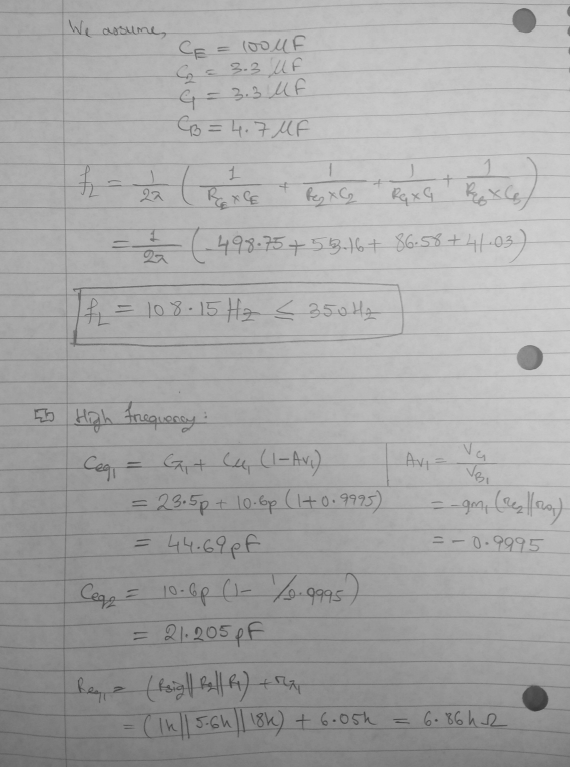 We assume,
C_E = 100μF
C_2 = 3.3 μF
C_1 = 3.3 μF
C_B = 4.7 μF
f_L = 1/2π ( 1/(R_CE × C_E) + 1/(R_C2 × C_2) + 1/(R_C1 × C_1) + 1/(R_CB × C_B) )
= 1/2π ( 498.75 + 53.16 + 86.58 + 41.03 )
f_L = 108.15 Hz ≤ 350 Hz
High frequency:
C_eq1 = C_π1 + C_μ1 (1 - Av_1) | Av_1 = V_C1/V_B1
= 23.5p + 10.6p (1 + 0.9995) = -gm_1 (re_2 || ro_1)
= 44.69 pF = -0.9995
C_eq2 = 10.6p (1 - 1/0.9995)
= 21.205 pF
R_eq1 = (Rsig || R_2 || R_1) + r_π1
= (1k || 5.6k || 18k) + 6.05k = 6.86k Ω